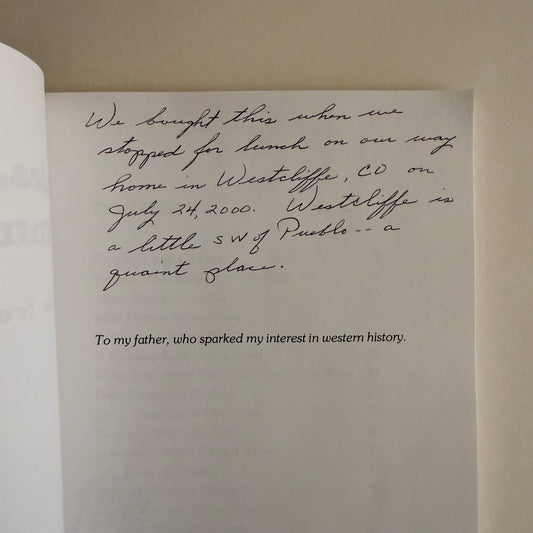 We bought this when we
stopped for lunch on our way
home in Westcliffe, CO on
July 24, 2000. Westcliffe is
a little SW of Pueblo -- a
quaint place.
To my father, who sparked my interest in western history.